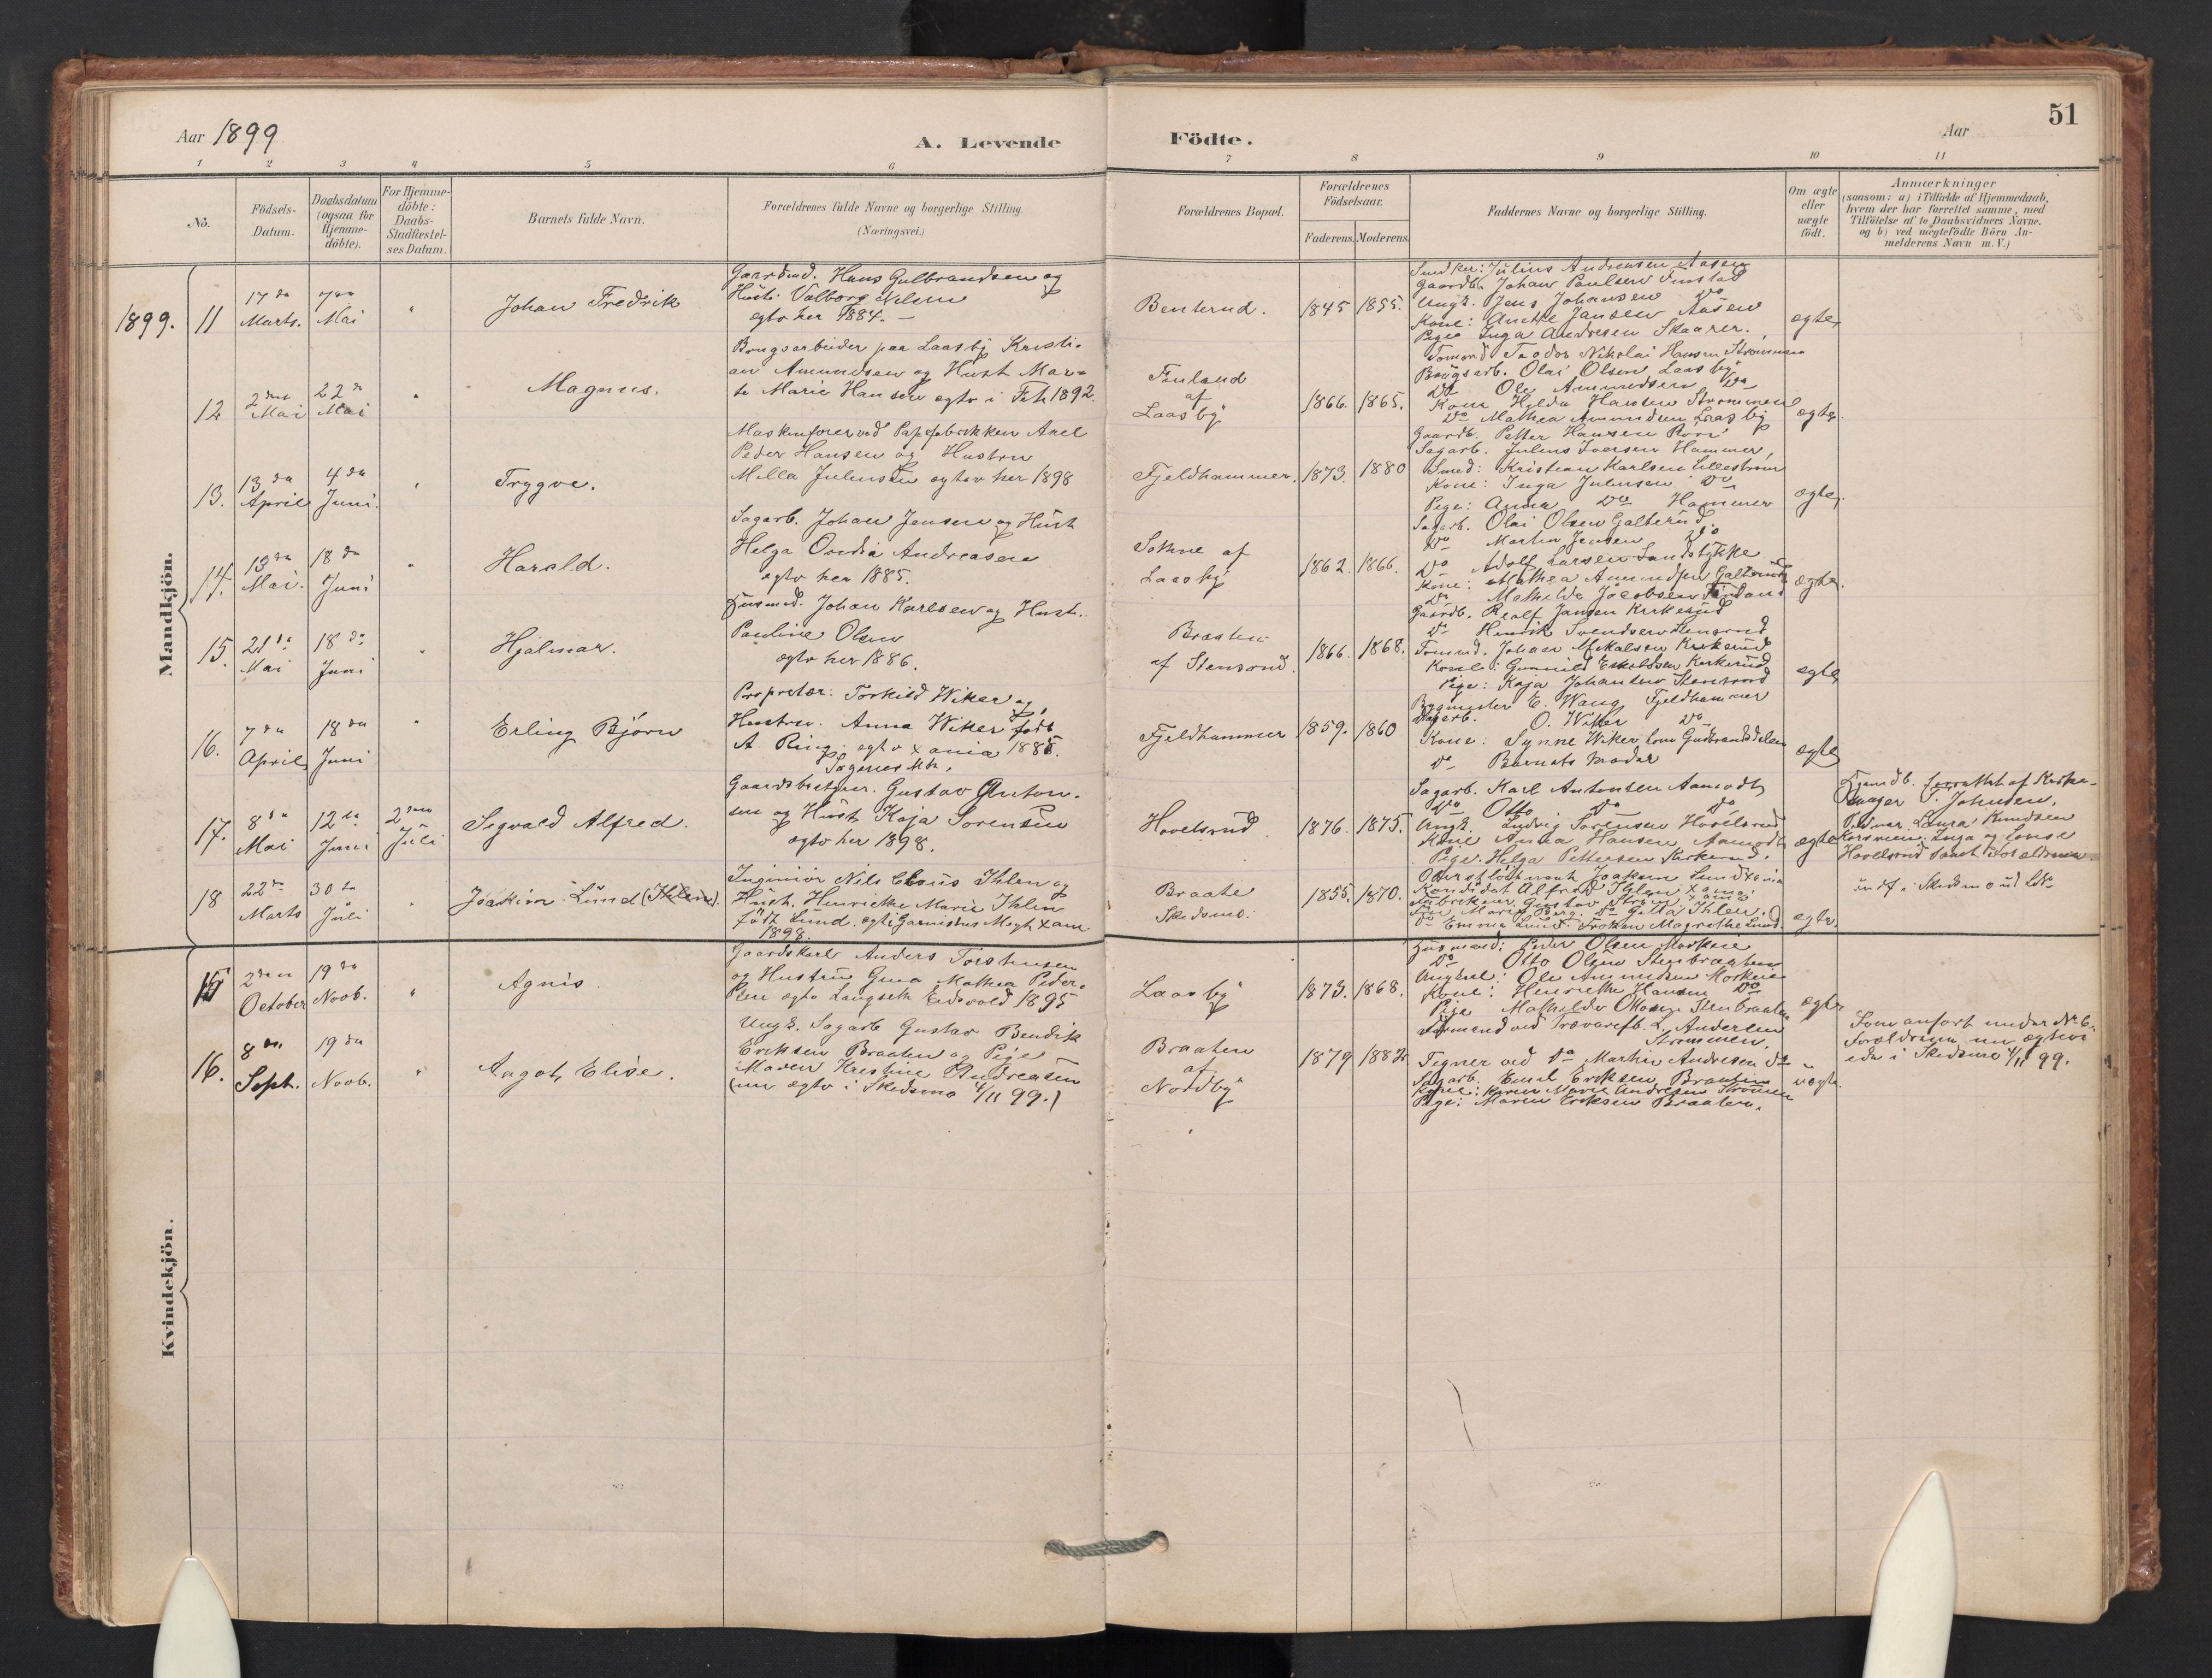 51
Aar 1899
A. Levende
Födte.
Aar
1
2
3
4
5
6
7
8
9
10
11
No.
Födsels-
Datum.
Daabsdatum
(ogsaa for
Hjemme-
döbte).
For Hjemme-
döbte:
Daabs-
Stadfæstel-
ses Datum.
Barnets fulde Navn.
Forældrenes fulde Navne og borgerlige Stilling.
(Næringsvei.)
Forældrenes Bopæl.
Forældrenes
Födselsaar.
Faderens.
Moderens.
Faddernes Navne og borgerlige Stilling.
Om ægte
eller
uægte
födt.
Anmærkninger
(saasom: a) i Tilfælde af Hjemmedaab,
hvem der har forrettet samme, med
Tilföielse af to Daabsvidners Navne.
og b) ved uægtefödte Börn An-
melderens Navn m. V.)
Mandkjön.
1899.
11
17de
Marts.
7de
Mai
"
Johan Fredrik
Gaardmd. Hans Gulbrandsen og
Hust. Valborg Nilsen
egtv her 1884. —
Benterud.
1845
1855.
Julius Andreasen Aasen
Gaardb. Johan Paulsen Finstad
Ungk. Jens Johansen Do
Kone: Anette Jansen Aasen
Pige Inga Andresen Skaarer.
egte,
12
2den
Mai
22de
Mai
"
Magnus.
Brugsarbeider paa Laasby Kristi-
an Amundsen og Hust Mar-
te Marie Hansen egtv i Feb 1892.
Finland
af
Laasby
1866.
1865.
Tomand Teodor Nikolai Hansen Strømmen
Brugsarb. Olai Olsen Laasby
Do Ole Amundsen Do
Kone Hilda Hansen Strømmen
Do Mathea Amundsen Laasby
egte.
13.
13de
April
4de
Juni.
"
Trygve.
Maskinfører ved Papfabrikken Axel
Peder Hansen og Hustru
Milla Juliussen egtv her 1898
Fjeldhammer.
1873.
1880
Gaardb. Petter Hansen
Sagarb. Julius Iversen Hammer,
Smed: Kristian Karlsen Lillestrøm
Kone: Inga Juliussen Do
Pige: Anna Do Hammer
egte,
14.
13de
Mai.
18de
Juni
"
Harald.
Sagarb. Johan Jensen og Hust
Helga Ovidia Andreasen
egtv her 1885.
af
Laasby
1862.
1866.
Sagarb. Olai Olsen Galterud.
Do Martin Jensen Do
Do Adolf Larsen Sandstykke
Kone: Mathea Amundsen Galterud
Do Mathilde Jacobsen Finland
egte.
15.
21de
Mai
18de
Juni
"
Hjalmar.
Husmd. Johan Karlsen og Hust.
Pauline Olsen
egtv her 1886.
Braaten
af Stensrud.
1866.
1868.
Gaardb. Rralf Jansen Kirkerud
Do Henrik Svendsen Stensrud
Tomand. Johan Mikalsen Kirkerud
Gunnild Kirkerud
Pige: Kaja Johansen Stensrud
egte,
16.
7de
April
18de
Juni
"
Erling Bjørn
Proprietær: Torkild Wiker og
Hustru. Anna Wiker født
A. Ring. egtv Xania 1885.
Sagenes Mh.
Fjeldhammer
1859.
1860
Bygmester E. Wang Fjeldhammer
O. Wiker Do
Kone: Synne Wiker Gudbrandsdalen
Do Barnets Moder
egte,
17.
8de
Mai
12te
Juni
2den
Juli
Sigvald Alfred.
Gaardsbestyrer. Gustav Anton-
sen og Hust Kaja Sørensen
egtv her 1898.
Hovelsrud
1876.
1875.
Sagarb. Karl Antonsen Aamodt
Do Otto Do Do
Ungk. Ludvig Sørensen Hovelsrud
Kone Anna Hansen Aamodt
Pige: Helga Pettersen Kirkerud.
egte
Hjemdb. forrettet af Kirke-
sanger T. Johnsen.
Laura Knudsen
Inga og Louise
Hovelsrud samt Forældrene
18
22de
Marts
30te
Juli
"
Joakim Lund (Ihlen).
Ingeniør Nils Claus Ihlen og
Hust. Henrieke Marie Ihlen
født Lund. egtv i Garnisons Mgh Xania
1898.
Braate
Skedsmo.
1855.
1870.
Oberstløitnant Joakim Lund Xania
Kandidat Alfred Ihlen Xania
Fabrikeier Gustav Strøm Xania
Fru Marie Berg. Do Gitta Ihlen.
Do Emma Lund. Frøken Magrethe Lund.
egte.
indf. i Skedsmo
Kvindekjön.
15
2den
October
19de
Novb.
"
Agnis
Gaardskarl Anders Torstensen
og Hustru Gina Mathea Peder-
sen egtv Langseth Eidsvold 1895
Laasby
1873.
1868.
Husmand: Peder Olsen Morken
Do Otto Olsen Stenbraaten
Ungkarl: Ole Amundsen Morken
Kone: Henriette Hansen Do
Pige Mathilde Olsen Stenbraaten
egte
16.
8de
Sept.
19de
Novb.
"
Aagot Elise.
Ungk. Sagarb Gustav Bendik
Eriksen Braaten og Pige
Maren Kristine Andreasen
(nu egtv i Skedsmo 4/11 99.)
Braaten
af
Nordby
1879
1882
Formand ved Trævarefb. L. Andersen
Strømmen.
Tegner ved Do Martin Andresen Do
Sagarb. Emil Eriksen Braaten
Kone: Karen Marie Andresen Strømmen
Pige: Maren Eriksen Braaten.
uegte.
Som anført under No 6.
Forældrene nu egtevi
ede i Skedsmo 4/11 99.